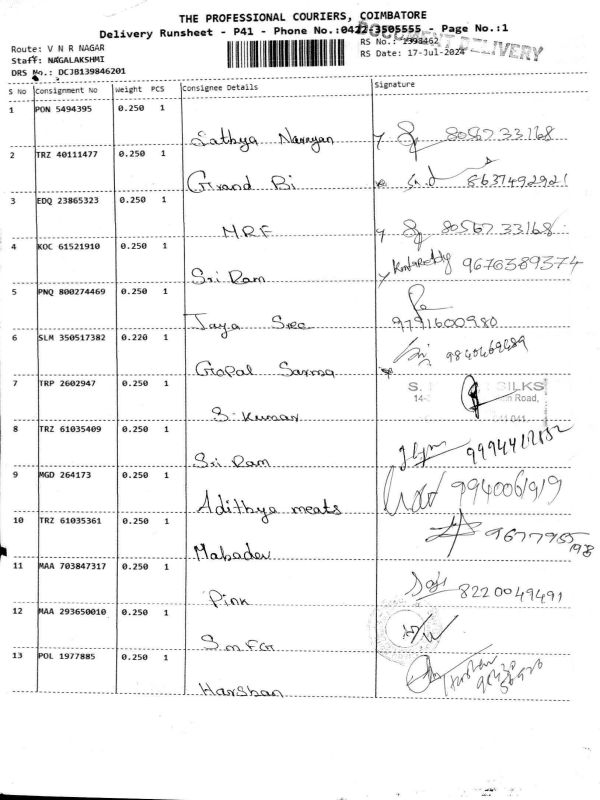 THE PROFESSIONAL COURIERS, COIMBATORE
Delivery Runsheet - P41 - Phone No.:0422-3505555 - Page No.:1
DOCUMENT DELIVERY
Route: V N R NAGAR
RS No.: 1393462
Staff: NAGALAKSHMI
RS Date: 17-Jul-2024
DRS No.: DCJB139846201
S No Consignment No Weight PCS Consignee Details Signature
1 PON 5494395 0.250 1
Sathya Narayan 80567 33168
2 TRZ 40111477 0.250 1
Grand Bi 8637492921
3 EDQ 23865323 0.250 1
MRF 80567 33168
4 KOC 61521910 0.250 1
Sri Ram 9676389374
5 PNQ 800274469 0.250 1
Jaya Sree 9791600980
6 SLM 350517382 0.220 1
Gopal Sarma
7 TRP 2602947 0.250 1
S. SILKS
Road,
S. Kumar
8 TRZ 61035409 0.250 1
Sri Ram
9 MGD 264173 0.250 1
Adithya meats 9940061919
10 TRZ 61035361 0.250 1
Mahadev
11 MAA 703847317 0.250 1
Pink 8220049491
12 MAA 293650010 0.250 1
SMFG
13 POL 1977885 0.250 1
Harshan